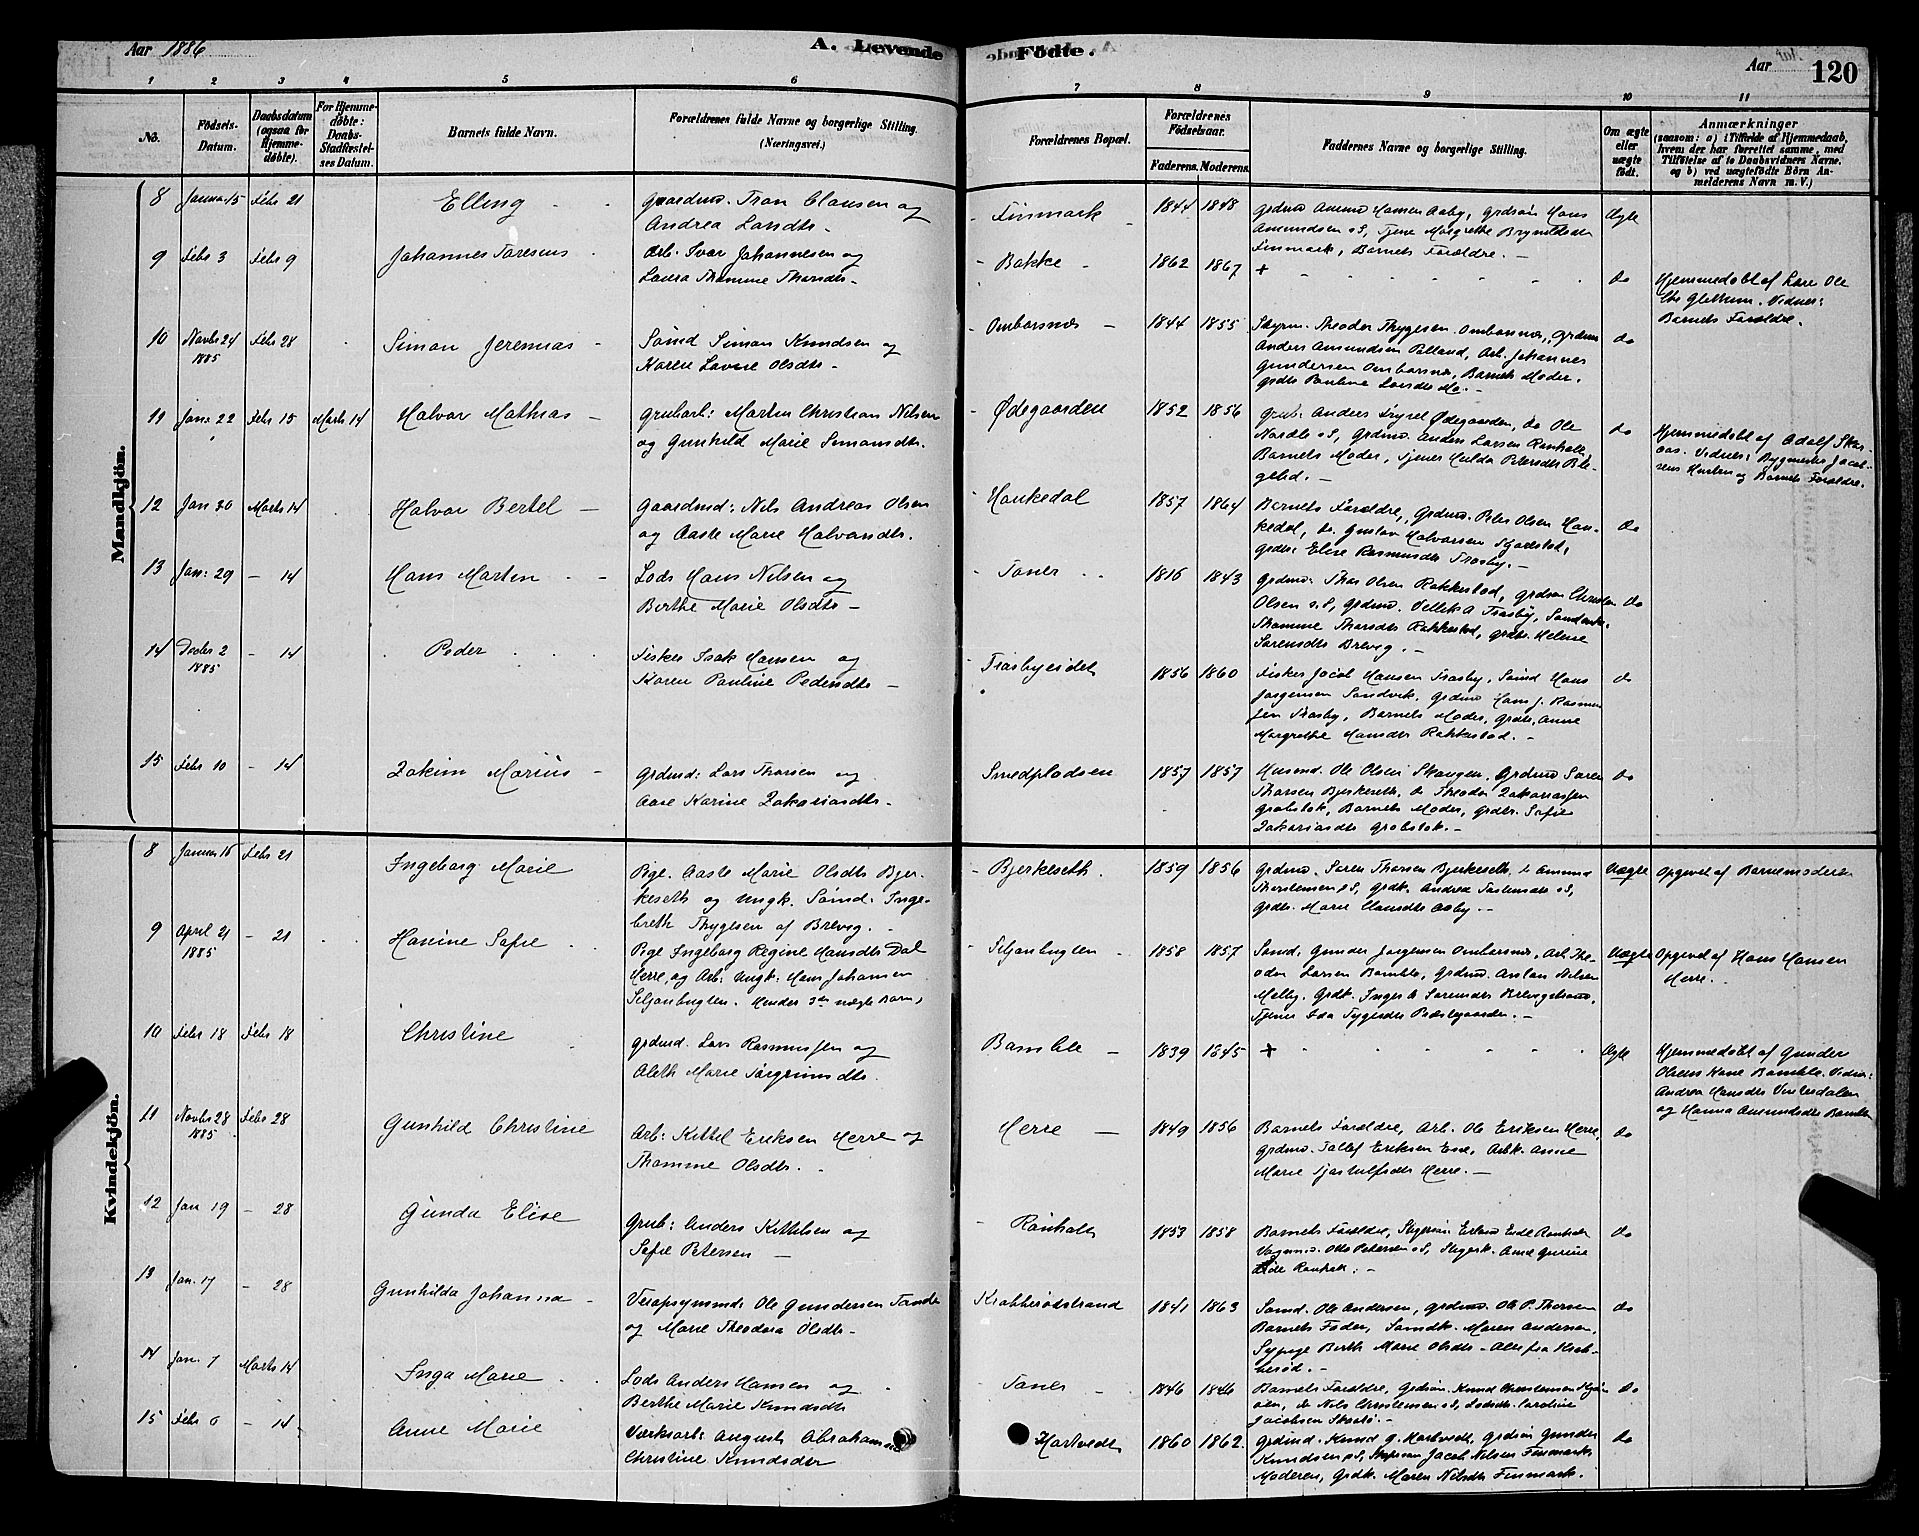 Aar 1886
A. Levende
Fødte.
Aar
120
1 2 3 4 5 6 7 8 9 10 11
No.
Fødsels-Datum.
Daabsdatum (ogsaa for Hjemme-døbte).
For Hjemme-døbte: Daabs-Stadfæstel-ses Datum.
Barnets fulde Navn.
Forældrenes fulde Navne og borgerlige Stilling. (Næringsvei.)
Forældrenes Bopæl.
Forældrenes Fødselsaar.
Faderens. Moderens.
Faddernes Navne og borgerlige Stilling.
Om ægte eller uægte født.
Anmærkninger
(saasom: a) i Tilfælde af Hjemmedaab, hvem der har forrettet samme, med Tilføielse af to Daabsvidners Navne. og b) ved uægtefødte Børn An-melderens Navn m. V.)
Mandkjön.
8 Januar 15 Febr 21 Elling
Gaardmd. Tron Clausen og
Andrea Larsdtr -
Finmark 1844 1848
Grdmd Amund Hansen Aaby, Grdsøn Hans
Amundsen s S, Tjene Margrethe Brynildsdtr
Finmark, Barnets Forældre. -
Ægte
9 Febr 3 Febr 9 Johannes
Arb. Ivar Johannesen og
Laura Thomine Thorsdtr -
Bakke 1862 1867 +
do
Hjemmedøbt af Lære Ole
Vidner:
Barnets Forældre.
10 Novbr 24 1885 Febr 28 Simon Jeremias -
Sømd Simon Knudsen og
Karen Lovise Olsdtr -
Omborsnes - 1844 1855
Styrm. Theodor Thygesen Omborsnes, Grdmd
Anders Amundsen, Arb. Johannes
Gundersen Omborsnes, Barnets Moder,
Grdtr Pauline Larsdtr
do
11 Janr 22 Febr 15 Marts 14 Halvor Mathias -
Grubarb: Martin Christian Nilsen
og Gunhild Marie Simonsdtr.
Ødegaarden 1852 1856
Grub. Anders Ødegaarden, do Ole
s S, Grdmd. Anders Larsen Rønholt,
Barnets Moder, Tjener Hulda Petersdtr
do
Hjemmedøbt af Adolf
Vidner: Bygmester Jacob-
sens Hustru og Barnets Forældre.
12 Jan 20 Marts 14 Halvor Bertel -
Gaardmd: Nils Andreas Olsen
og Aaste Marie Halvorsdtr.
Haukedal 1857 1864
Barnets Forældre, Grdmd. Peter Olsen Hau-
kedal, do. Gustav Halvorsen
Grdtr. Elise Rasmusdtr Traasby. -
do
13 Jan: 29 - 14 Hans Martin -
Lods Hans Nilsen og
Berthe Marie Olsdtr -
Toner 1816 1843
Grdmd. Thor Olsen Rakkestad, Grdsøn Christen
Olsen s. S, Grdmd. Traasby,
Thomine Thorsdtr Rakkestad, Grdtr. Helene
Sørensdtr Brevig. -
do
14 Decbr 2 1885 - 14 Peder
Fisker Isak Hansen og
Karen Pauline Pedersdtr -
Traasbyeidet 1856 1860
Fisker Jacob Hansen Traasby, Sømd Hans
Jørgensen Sandvik, Grdmd Hans J. Rasmus-
sen Traasby, Barnets Moder, Grdtr. Anne
Margrethe Hansdtr Rakkestad. -
do
15 Febr 10 - 14 Zakim Marius -
Grdmd: Lars Thorsen og
Aase Karine Zakariasdtr -
Smedpladsen 1857 1857
Husmd. Ole Olsen Skaugen, Grdmd Søren
Thorsen Bjerkeseth, do Theodor Zakariassen
Grobstok, Barnets Moder, Grdtr. Sofie
Zakariasdtr Grobstok. -
do
Kvindekjön.
8 Januar 16 Febr 21 Ingeborg Marie
Pige. Aaste Marie Olsdtr Bjer-
keseth og Ungk. Sømd. Inge-
breth Thygesen af Brevig. -
Bjerkeseth. 1859 1856
Grdmd. Søren Thorsen Bjerkeseth, do Amund
Thorstensen s S, Grdk. Andrea s S,
Grdtr. Marie Hansdtr Aaby. -
Uægte
Opgivet af Barnemoderen
9 April 21 1885 - 21 Hanine Sofie
Pige Ingeborg Regine Hansdtr Dal
Herre, og Arb. Ungk. Hans Johansen
Siljanbugten. Hendes 3die uægte Barn,
Siljanbugten 1858 1857
Sømd. Gunder Jørgensen Omborsnes, Arb. The-
odor Larsen Bamble, Grdmd. Anton Nilsen
Melby, Grdk. Inger A Sørensdtr Brevigstrand,
Tjener Ida Tygesdtr Præstegaarden. -
Uægte
Opgivet af Hans Hansen
Herre.
10 Febr 18 Febr 18 Christine
Grdmd. Lars Rasmussen og
Aleth Marie Torgrimsdtr.
Bamble - 1839 1845 +
Ægte
Hjemmedøbt af Gunder
Olsens Kone Bamble. Vidner:
Andrea Hansdtr Vinkedalen
og Hanna Amundsdtr Bamble
11 Novbr 28 1885 Febr 28 Gunhild Christine
Arb: Kittel Eriksen Herre og
Thomine Olsdtr.
Herre - 1849 1856
Barnets Forældre, Arb. Ole Eriksen Herre,
Grdmd. Tallef Eriksen, Arbk. Anne
Marie Herre. -
do
12 Jan 19 - 28 Gunda Elise
Grub: Anders Kittelsen og
Sofie Petersen -
Rønholt 1853 1858
Barnets Forældre, Erland Eide Rønholt
Otto Petersen s S, Anne Gurine
Eide Rønholt. -
do
13 Jan. 17 - 28 Gunhilda Johanna -
Ole Gundersen
og Marie Theodora Olsdtr -
Krabberødstrand 1841 1863
Sømd. Ole Andersen, Grdmd. Ole P. Thorsen
Barnets Fader, Sømdk. Maren Andersen,
Sypige Berth Marie Olsdtr - Alle fra Krab-
berød. -
do
14 Jan. 7 Marts 14 Inga Marie
Lods Anders Hansen og
Berthe Marie Knudsdtr
Toner - 1846 1846
Barnets Forældre, Grdsøn. Knud Christensen
do Nils Christensen s S, Lodsdtr. Caroline
Jacobsen
do
15 Febr 6 - 14 Anne Marie
Værksarb: August Abrahamsen
Christine Knudsdtr
Hartvedt 1860 1862.
Grdmd. Knud G. Hartvedt, Grdsøn Gunder
Knudsen s S, Jacob Nilsen Finmark,
Moderen, Grdk. Maren Nilsdtr Finmark.
do